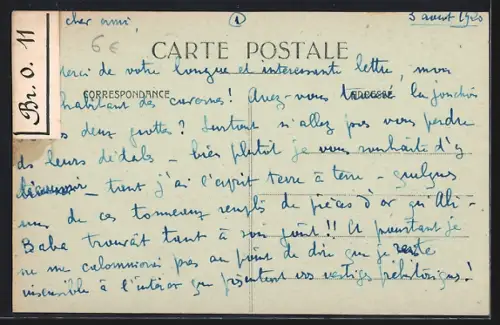 cher ami, ① 3 août 1920
6€
CARTE POSTALE
Br. O. 11
merci de votre longue et intéressante lettre, mon
CORRESPONDANCE ADRESSE
habitant des cavernes! Avez-vous trouvé la jonction
deux grottes? Surtout n'allez pas vous perdre
ds leurs dédales – bien plutôt je vous souhaite d'y
tant j'ai l'esprit terre à terre – quelques
uns de ces tonneaux remplis de pièces d'or qu'Ali-
Baba trouvait tant à son goût!! Et pourtant je
ne me calomnierai pas au point de dire que je reste
insensible à l'intérêt que présentent vos vestiges préhistoriques!